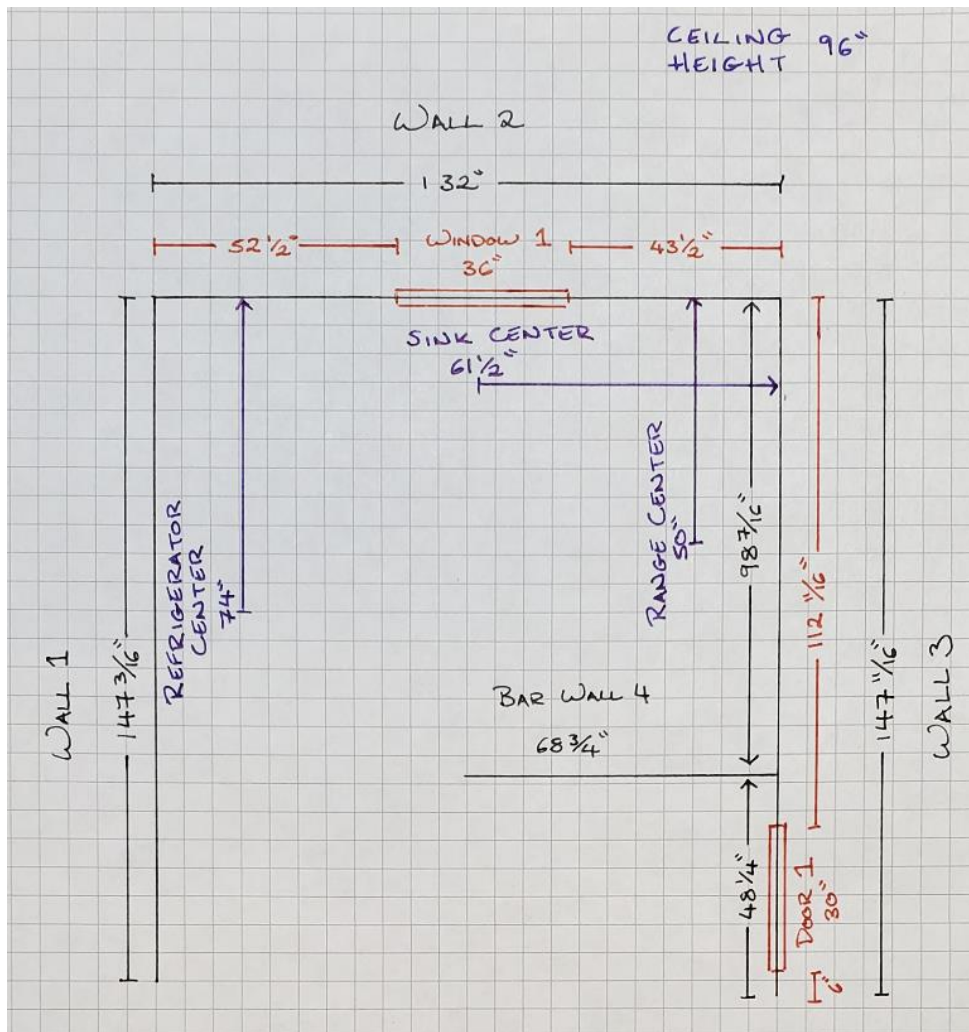 CEILING 96"
HEIGHT
WALL 2
132"
52 1/2"
WINDOW 1
36"
43 1/2"
SINK CENTER
61 1/2"
REFRIGERATOR
CENTER
74"
RANGE CENTER
50"
98 7/16"
112 11/16"
WALL 1
147 3/16"
BAR WALL 4
68 3/4"
147 11/16"
WALL 3
48 1/4"
DOOR 1
30"
6"